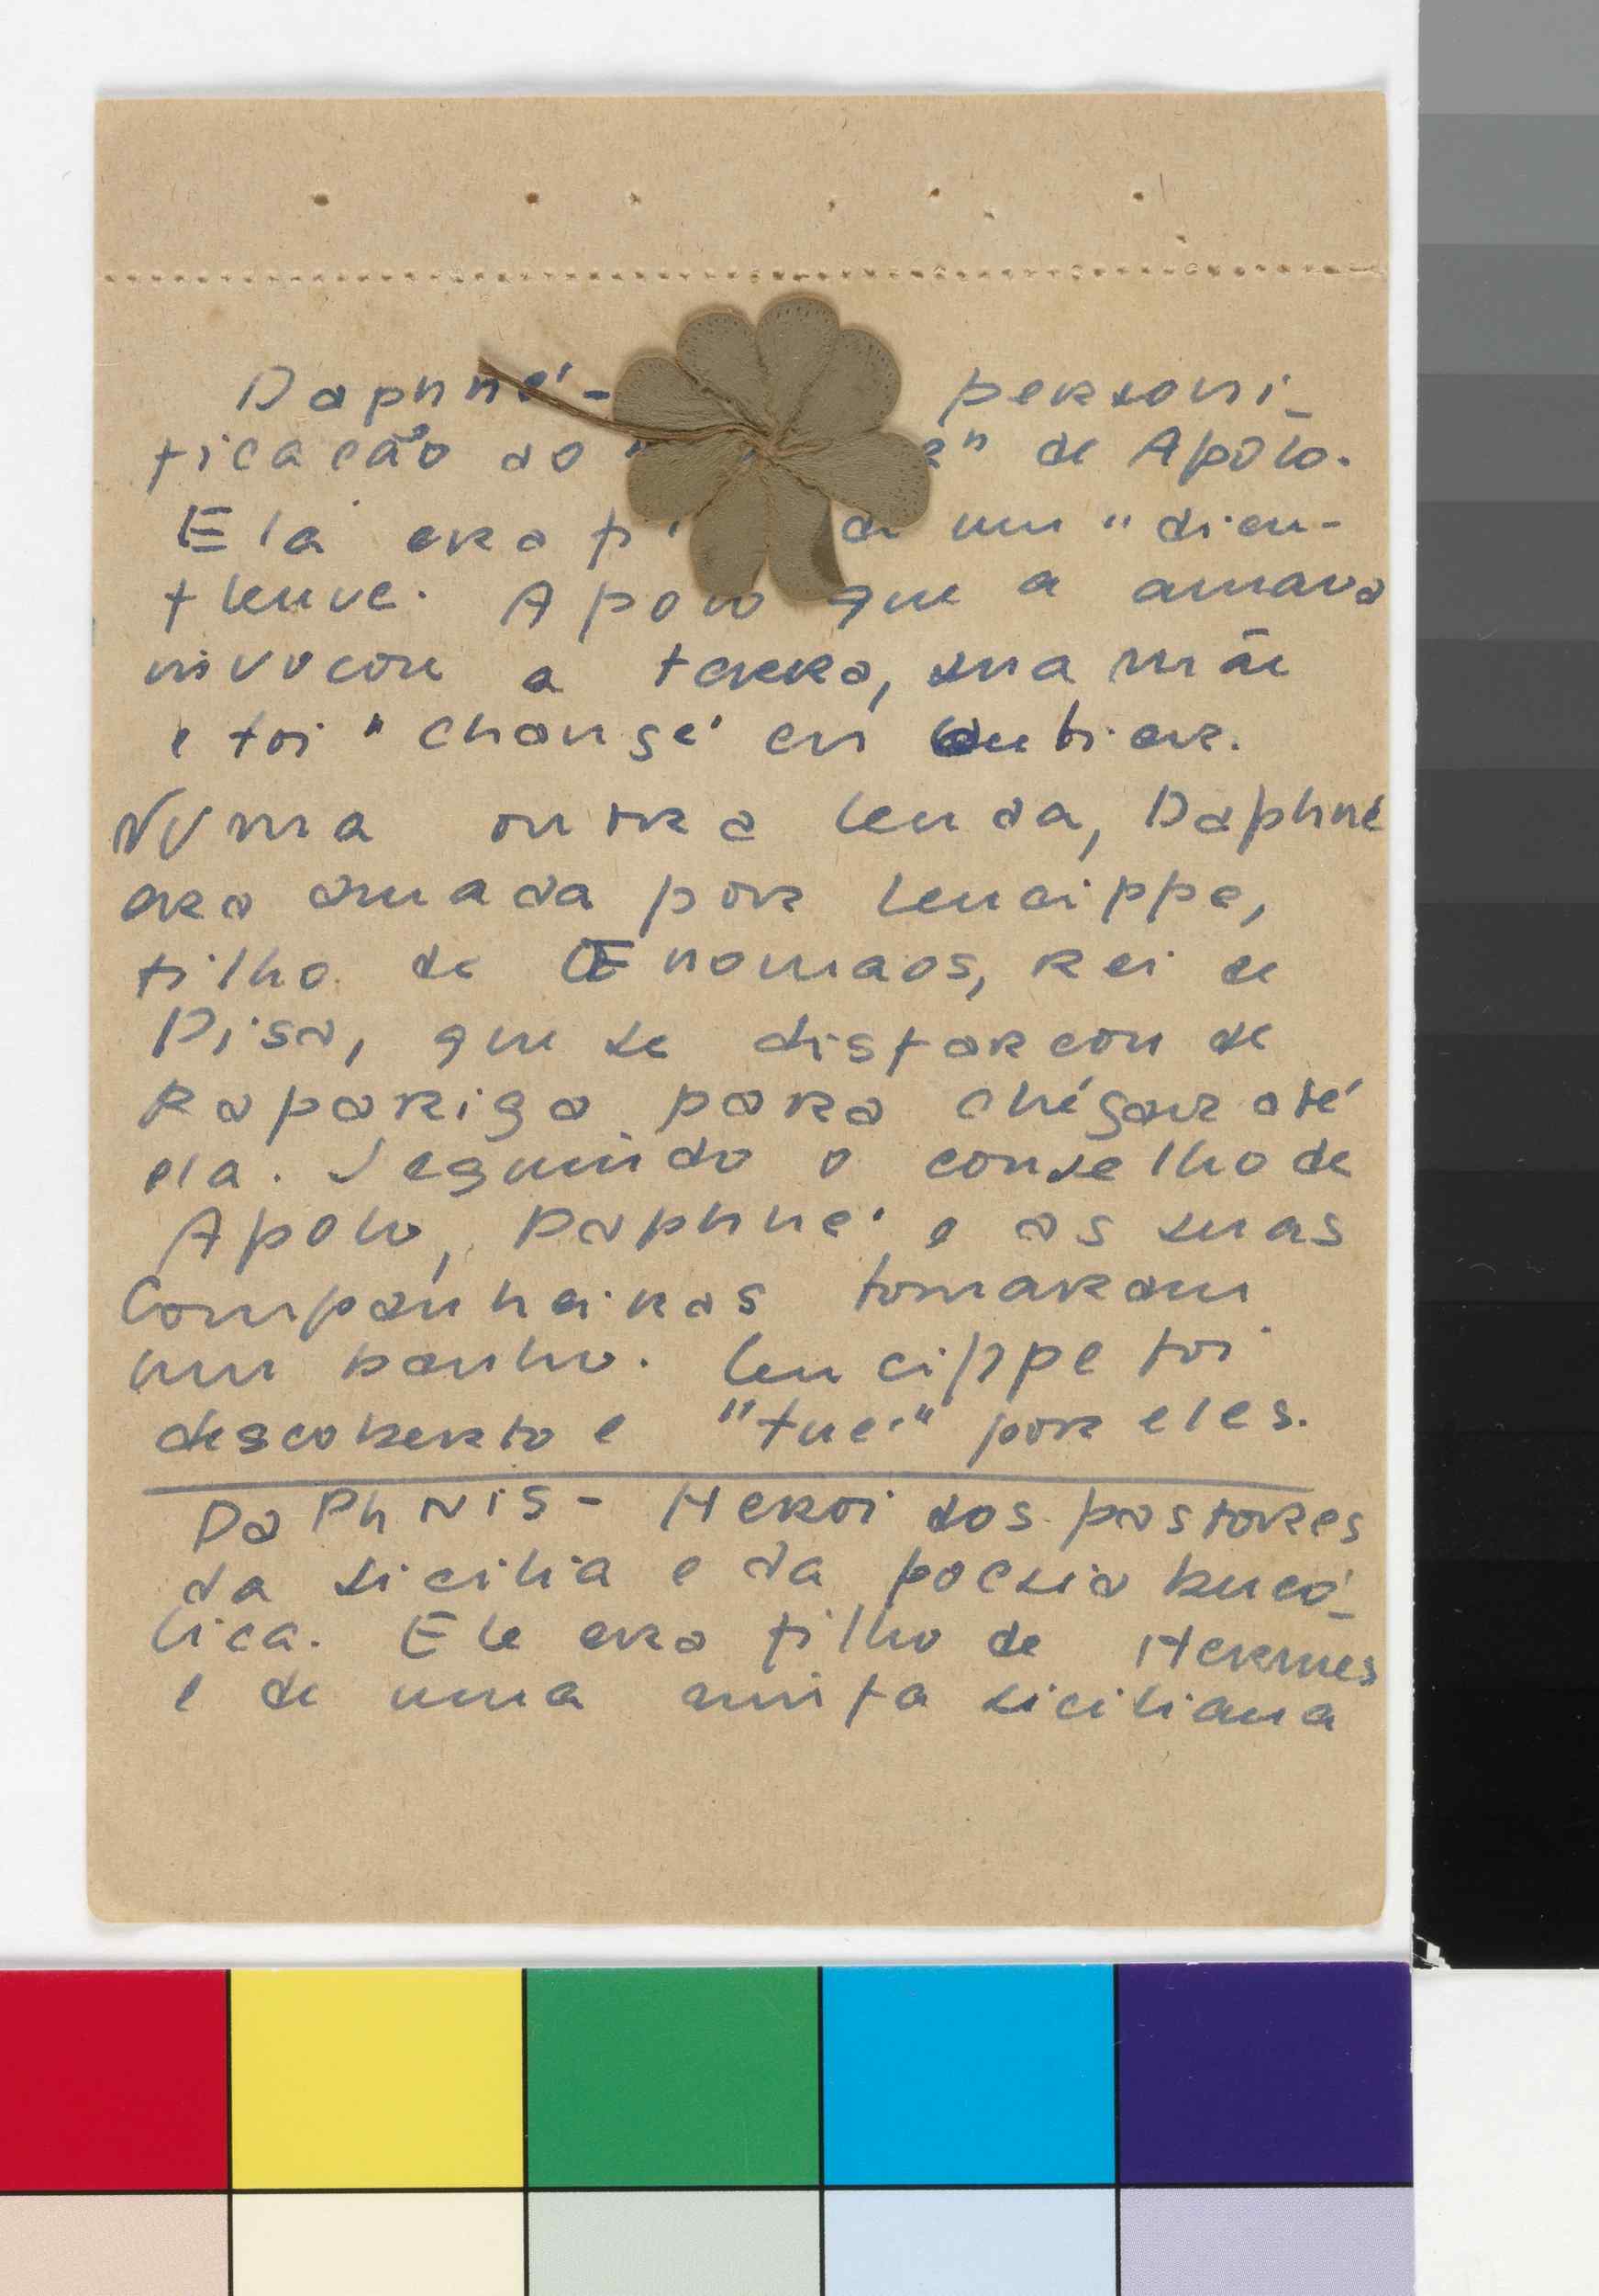 Daphné - personi-
ficação do " " de Apolo.
Ela era de um "dieu-
fleuve. Apolo que a amava
invocou a terra, sua mãe
e foi "changé" en
Numa outra lenda, Daphné
era amada por Leucippe,
filho de Œnomaos, rei de
Pisa, que se disfarcou de
Rapariga para chégar até
ela. Seguindo o conselho de
Apolo, Daphné e as suas
Companheiras tomaram
um banho. Leucippe foi
descoberto e "tué" por eles.
DaPhNis - Heroi dos pastores
da sicilia e da poesia bucó-
lica. Ele era filho de Hermes
e de uma ninfa siciliana